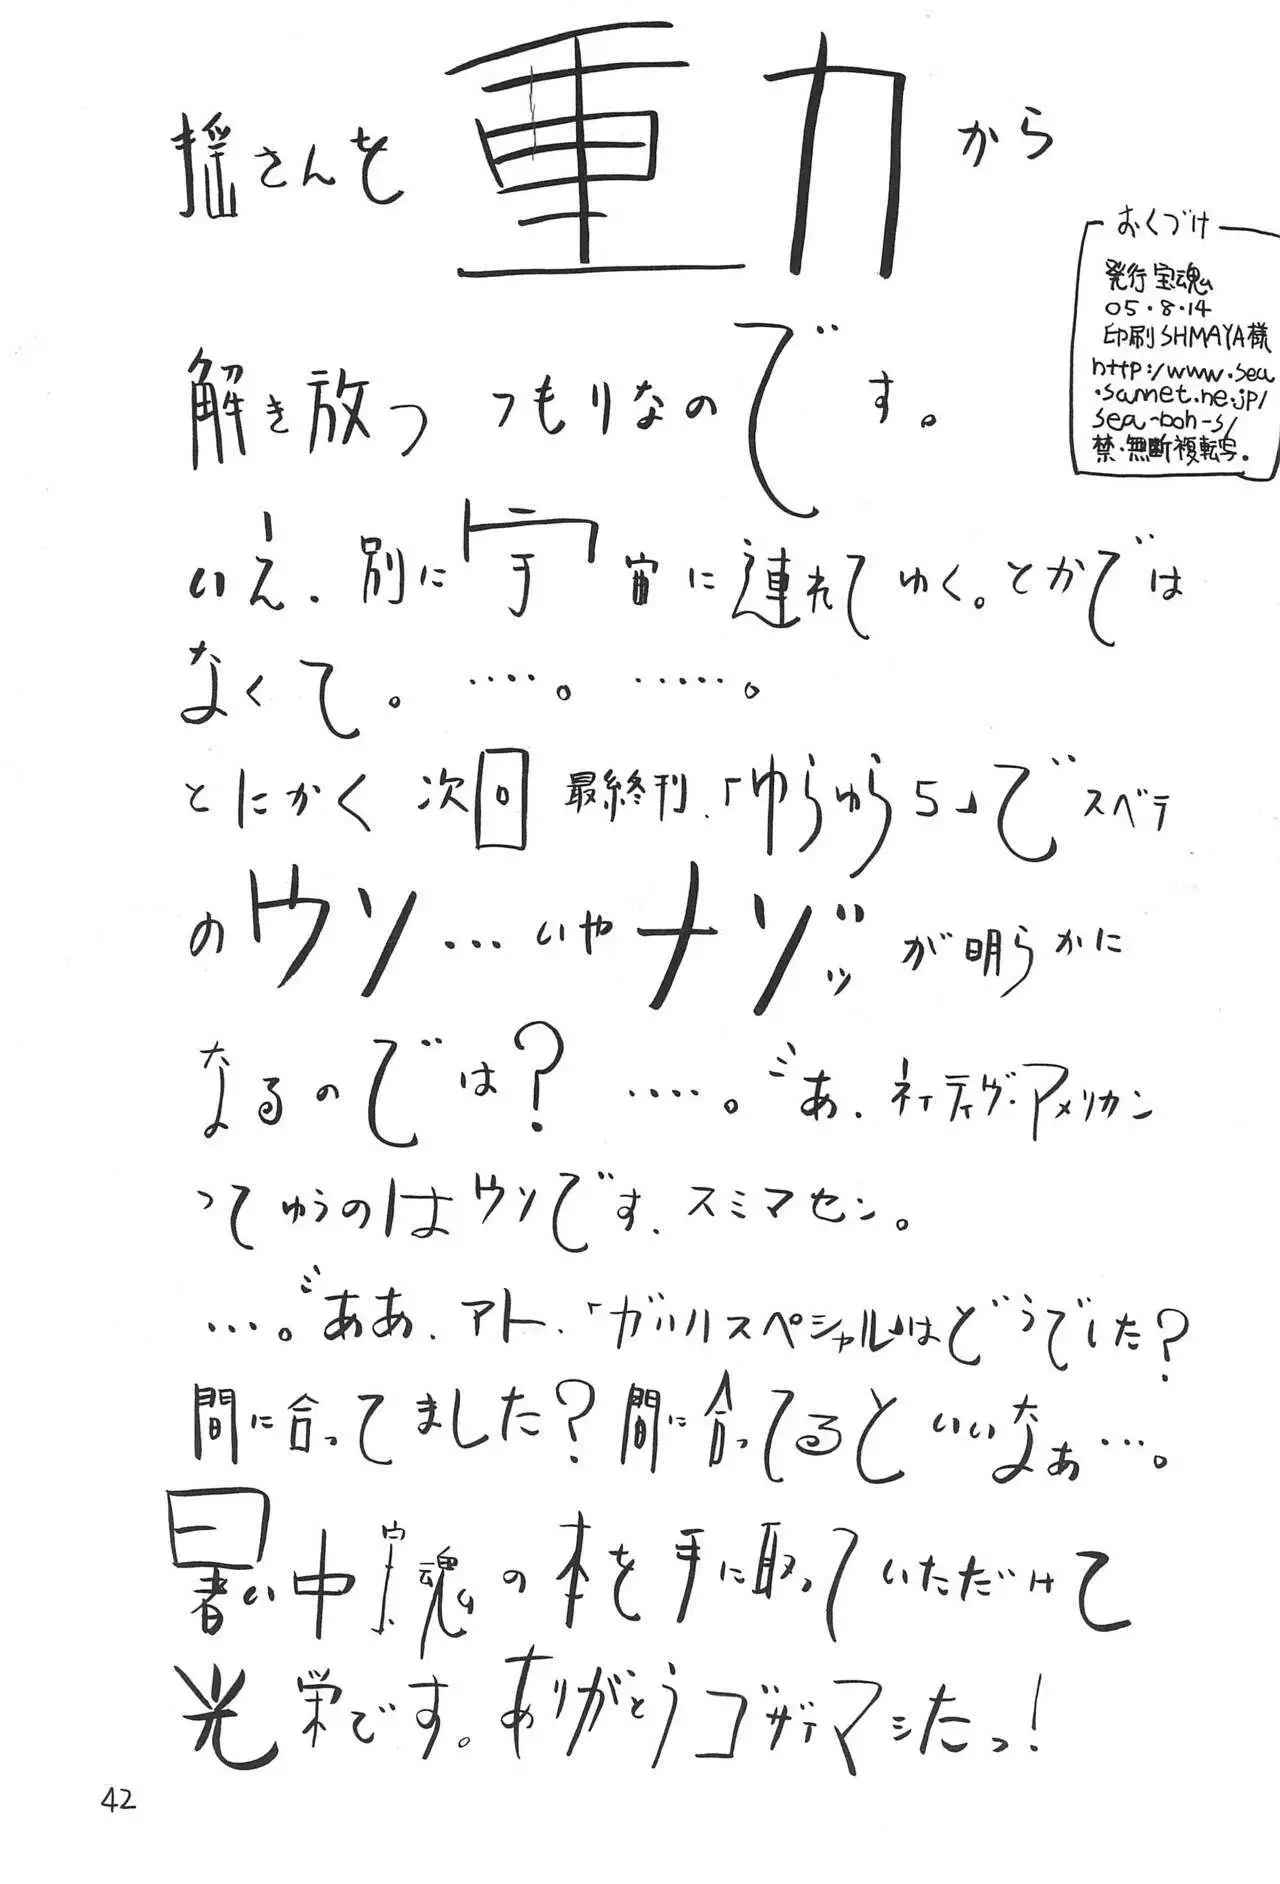 揺さんを重力から
解き放つつもりなのです。
いえ、別に宇宙に連れてゆく。とかでは
なくて。‥‥。‥‥‥。
とにかく次回最終刊、「ゆらゆら5」でスベテ
のウソ…いやナゾッが明らかに
なるのでは?‥‥‥。あ、ネイティヴ・アメリカン
ってゆうのはウソです、スミマセン。
…。ああ、アト、「ガハハスペシャル」はどうでした?
間に合ってました?間に合ってるといいなぁ…。
暑い中宝魂の本を手に取っていただけて
光栄です。ありがとうゴザイマシたっ!
おくづけ
発行 宝魂
05・8・14
印刷 SHMAYA様
http://www.sea
.sannet.ne.jp/
sea-boh-s/
禁・無断複転写。
42